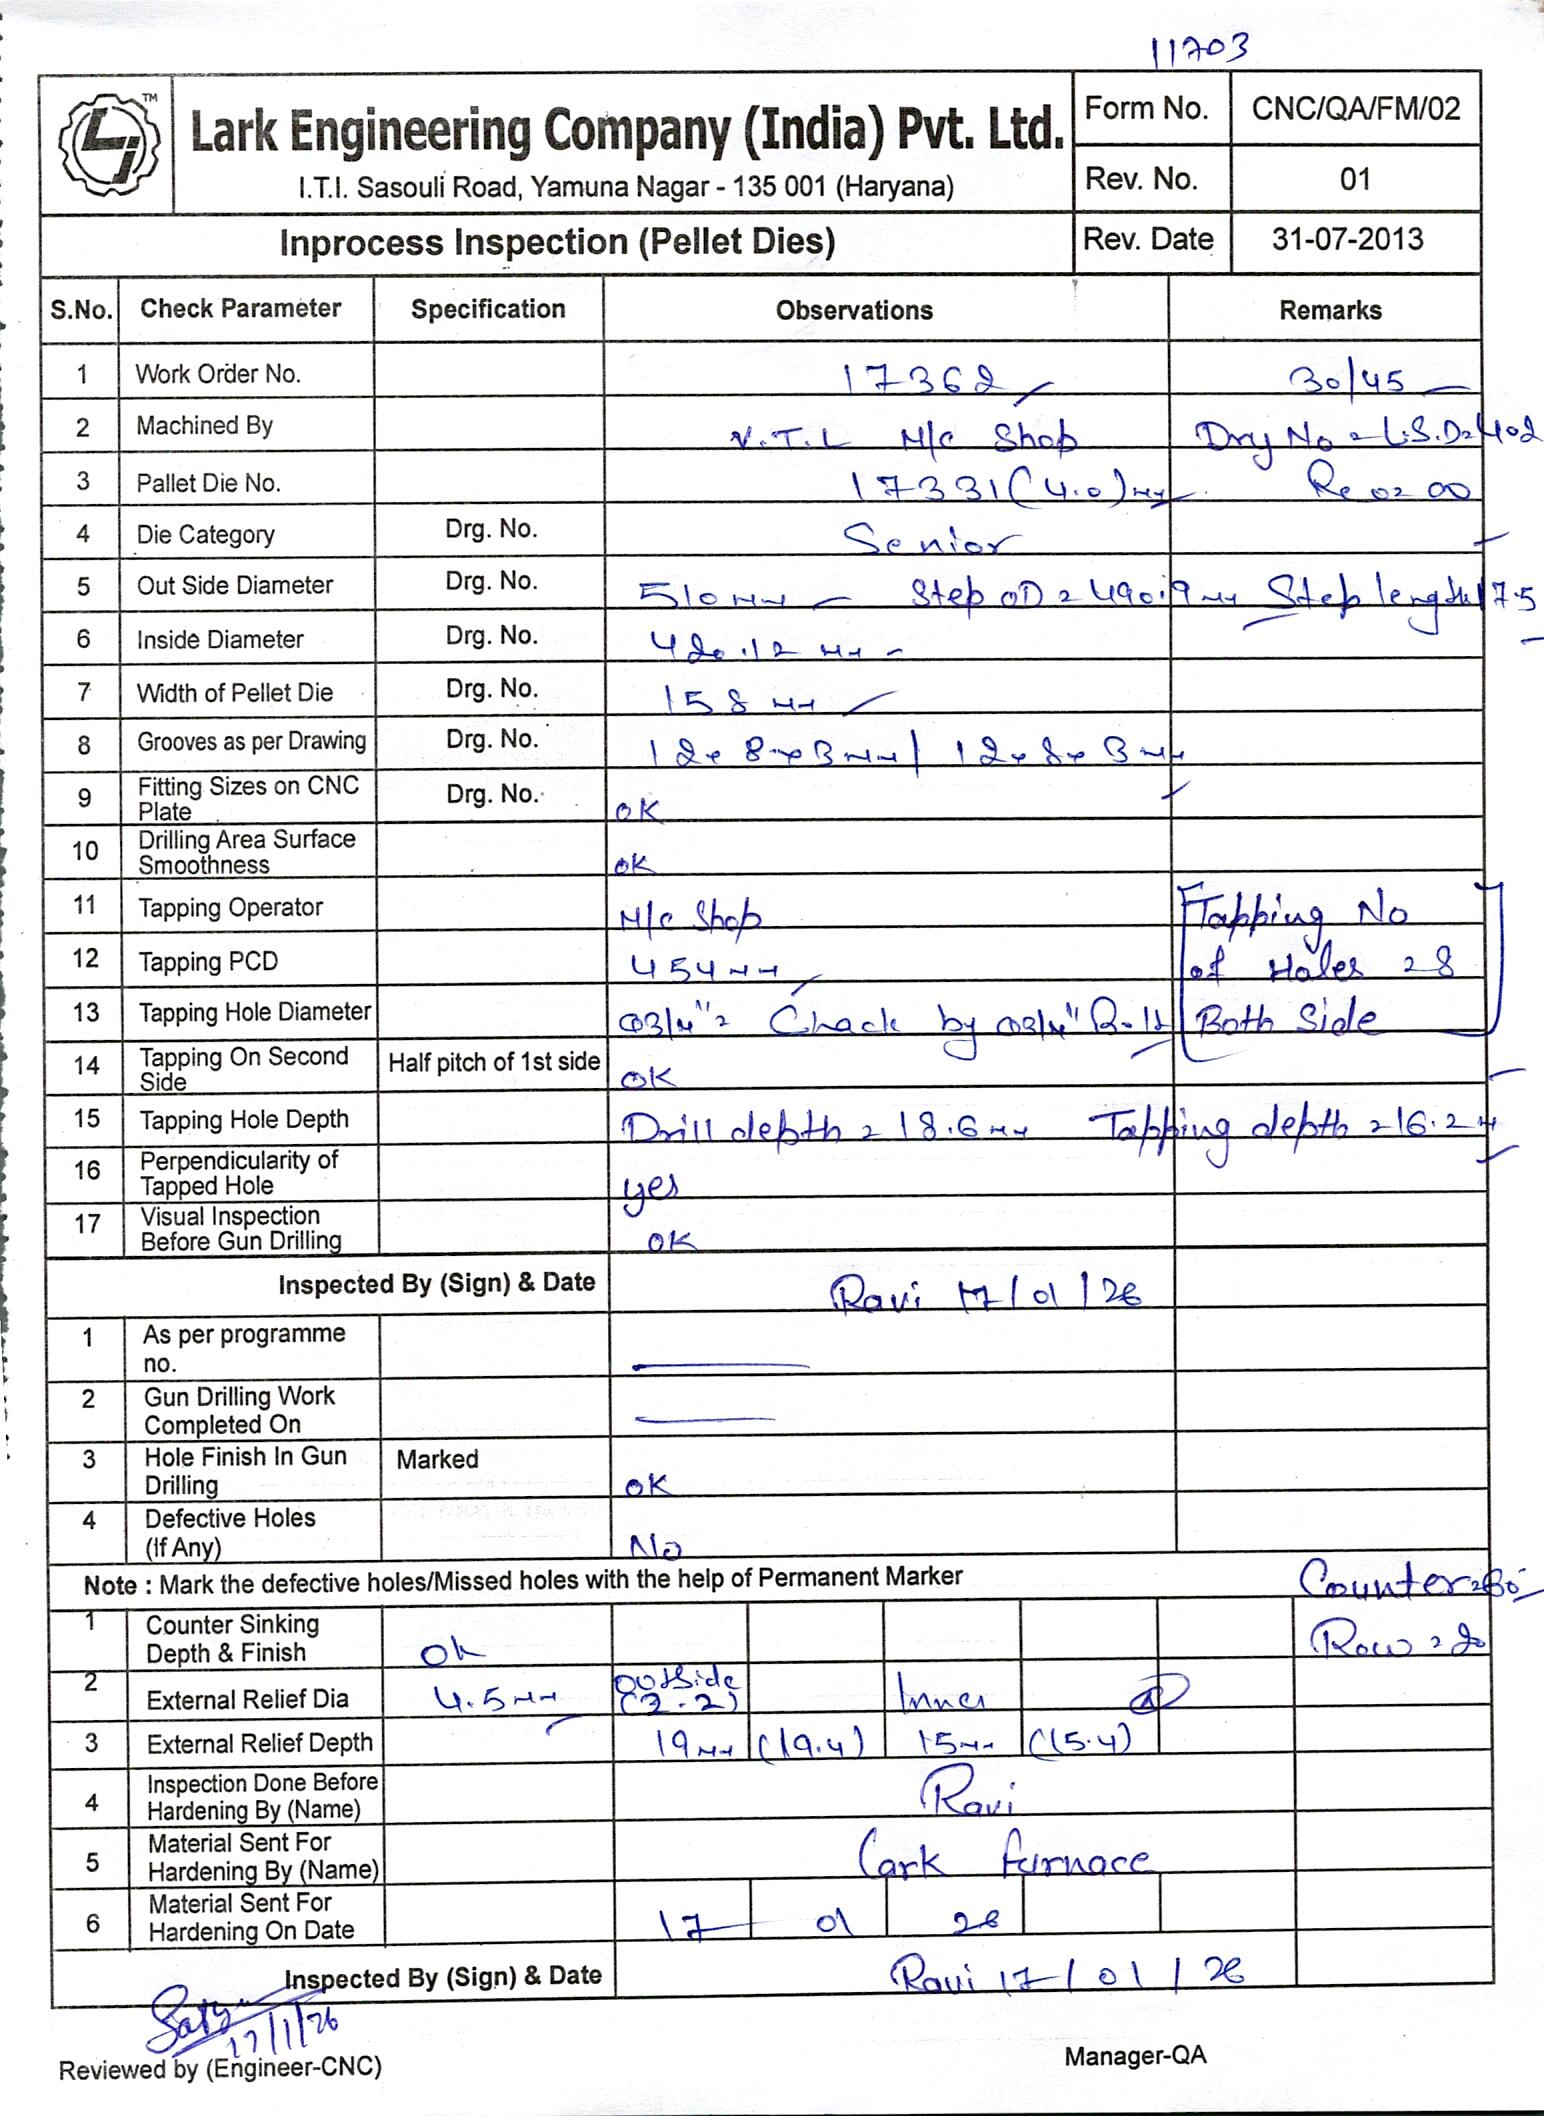 11703
TM
Lark Engineering Company (India) Pvt. Ltd.
I.T.I. Sasouli Road, Yamuna Nagar - 135 001 (Haryana)
Form No. CNC/QA/FM/02
Rev. No. 01
Inprocess Inspection (Pellet Dies)
Rev. Date 31-07-2013
S.No. Check Parameter Specification Observations Remarks
1 Work Order No. 17362 30/45
2 Machined By V.T.L M/c Shop Drg No = L.S.D=402
3 Pallet Die No. 17331 (4.0) mm 00
4 Die Category Drg. No. Senior
5 Out Side Diameter Drg. No. 510 mm Step OD = 490.9 mm Step length 175
6 Inside Diameter Drg. No. 420.12 mm
7 Width of Pellet Die Drg. No. 158 mm
8 Grooves as per Drawing Drg. No. 12x8x3mm / 12x8x3mm
9 Fitting Sizes on CNC Plate Drg. No. OK
10 Drilling Area Surface Smoothness OK
11 Tapping Operator M/c Shop Tapping No
12 Tapping PCD 454mm of Holes = 8
13 Tapping Hole Diameter 3/4" = Chack by 3/4" Bolt Both Side
14 Tapping On Second Side Half pitch of 1st side OK
15 Tapping Hole Depth Drill depth = 18.6mm Tapping depth = 16.2
16 Perpendicularity of Tapped Hole yes
17 Visual Inspection Before Gun Drilling OK
Inspected By (Sign) & Date Ravi 17/01/26
1 As per programme no.
2 Gun Drilling Work Completed On
3 Hole Finish In Gun Drilling Marked OK
4 Defective Holes (If Any) No
Note : Mark the defective holes/Missed holes with the help of Permanent Marker Counter
1 Counter Sinking Depth & Finish Ok Row = 20
2 External Relief Dia 4.5mm Outside (2.2) Inner
3 External Relief Depth 19mm (19.4) 15mm (15.4)
4 Inspection Done Before Hardening By (Name) Ravi
5 Material Sent For Hardening By (Name) Lark furnace
6 Material Sent For Hardening On Date 17 01 26
Inspected By (Sign) & Date Ravi 17/01/26
17/1/26
Reviewed by (Engineer-CNC) Manager-QA